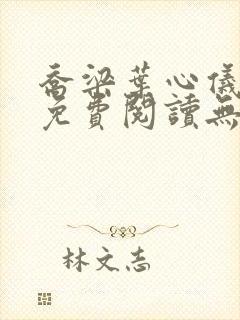 喬梁葉心儀
免費閱讀無
林文志